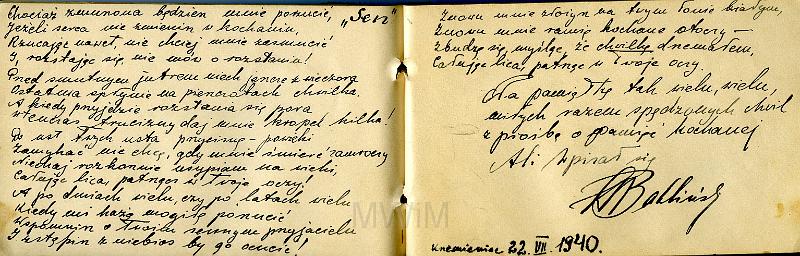 „Sen"
Chociaż zmuszona będziesz mnie porzucić,
Jeżeli serca nie zmienisz w kochaniu,
Rzucając nawet nie chciej mnie zasmucić
I, rozstając się, nie mów o rozstaniu!
Przed smutnym jutrem niech jeszcze z wieczora
Ostatnia spłynie na pieszczotach chwilka,
A kiedy przyjdzie rozstania się pora
Wtenczas trucizny daj mnie kropel kilka!
Do ust Twych usta przycisnę – powieki
Zamykać nie chcę, gdy mnie śmierć zamroczy
Niechaj rozkosznie usypiam na wieki,
Całując lica, patrząc w Twoje oczy!
A po dniach wielu, czy po latach wielu
Kiedy mi każą mogiłę porzucić
Wspomnisz o Twoim sennym przyjacielu
I zstąpisz z niebios by go ocucić!
Znowu mnie złożysz na twym łonie białym,
Znowu mnie ramię kochane otoczy –
Zbudzę się, myśląc, że chwilkę drzemałem,
Całując lica, patrząc w Twoje oczy.
Na pamiątkę tak wielu, wielu,
miłych razem spędzonych chwil
z prośbą o pamięć kochanej
Ali wpisał się
Krzemieniec 22. VII. 1940.
MWIM